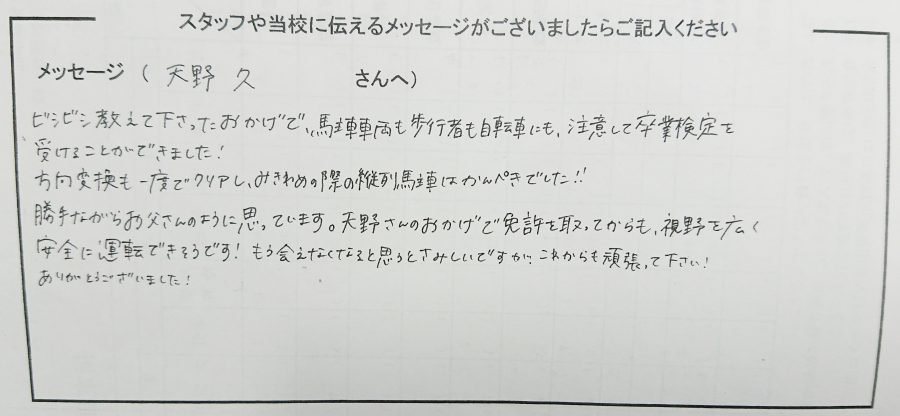 スタッフや当校に伝えるメッセージがございましたらご記入ください
メッセージ ( 天野 久 さんへ)
ビシビシ教えて下さったおかげで、駐車車両も歩行者も自転車にも、注意して卒業検定を
受けることができました!
方向変換も一度でクリアし、みきわめの際の縦列駐車はかんぺきでした!!
勝手ながらお父さんのように思っています。天野さんのおかげで免許を取ってからも、視野を広く
安全に運転できそうです! もう会えなくなると思うとさみしいですが、これからも頑張って下さい!
ありがとうございました!